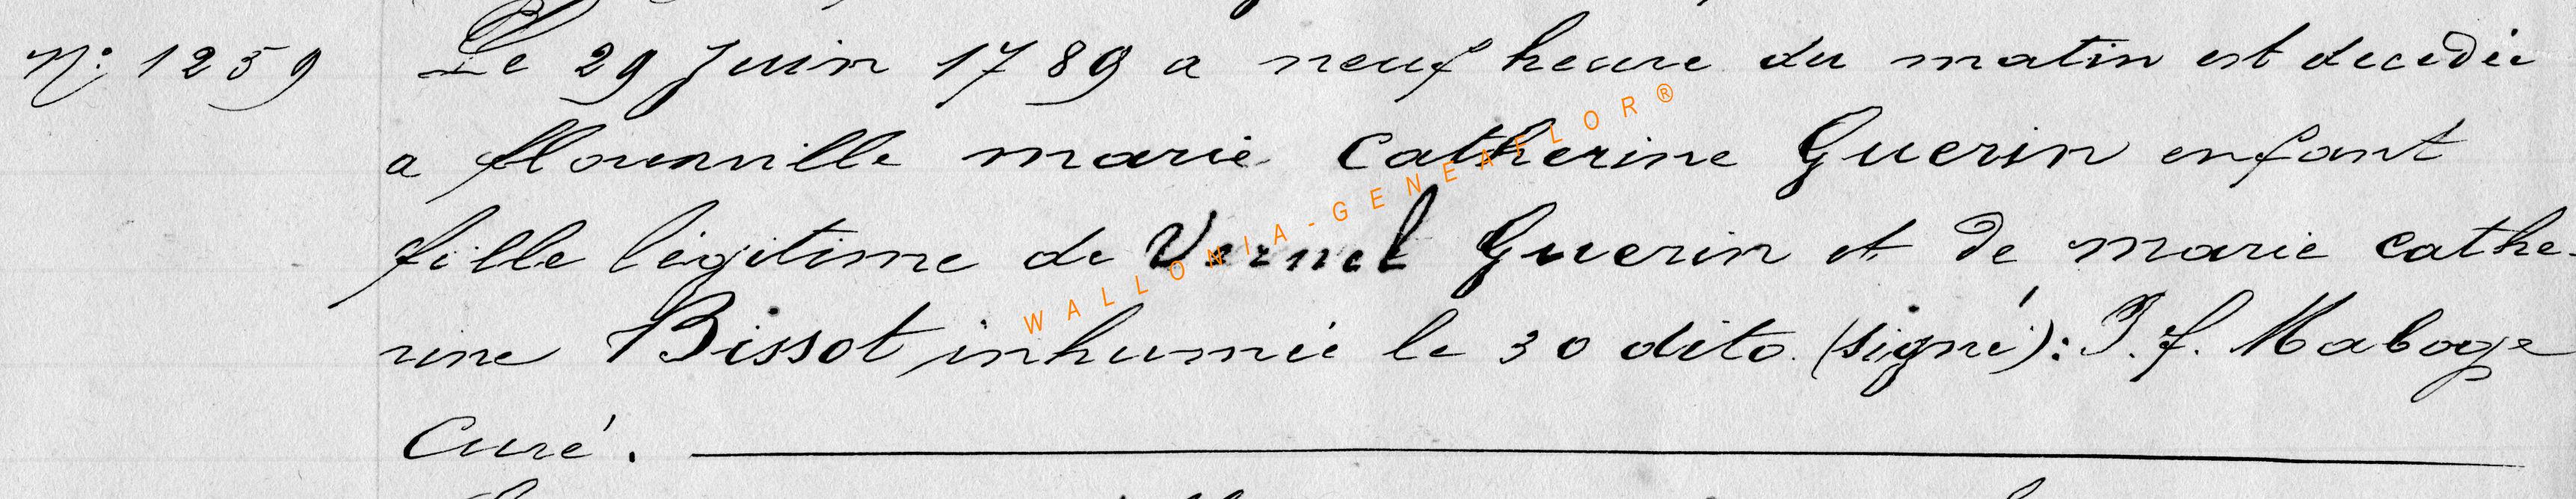 N° 1259 Le 29 Juin 1789 a neuf heure du matin est decedée
a florenville marie Catherine Guerin enfant
fille légitime de Vernel Guerin et de marie cathe-
rine Bissot inhumée le 30 dito. (signé): J. f. Maboge
Curé.
WALLONIA-GENEAFLOR®